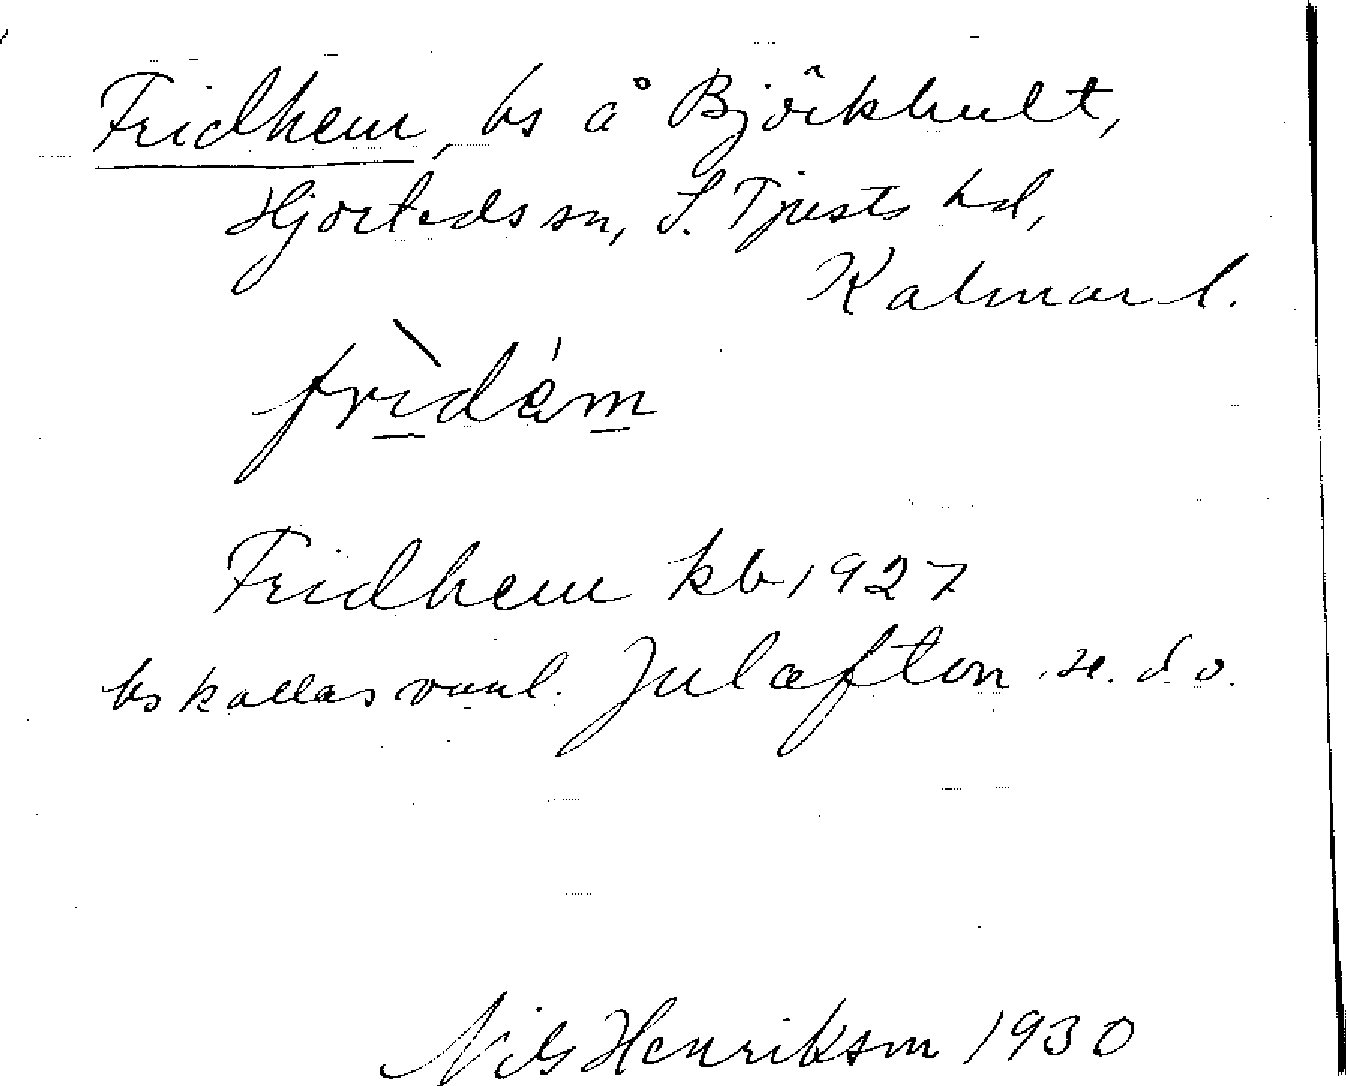 Fridhem, bs å Björkhult,
Hjorteds sn, S. Tjusts hd,
Kalmar l.
frìdém
Fridhem kb 1927
bs kallas vanl. Julafton se. d. o.
Nils Henrikson 1930